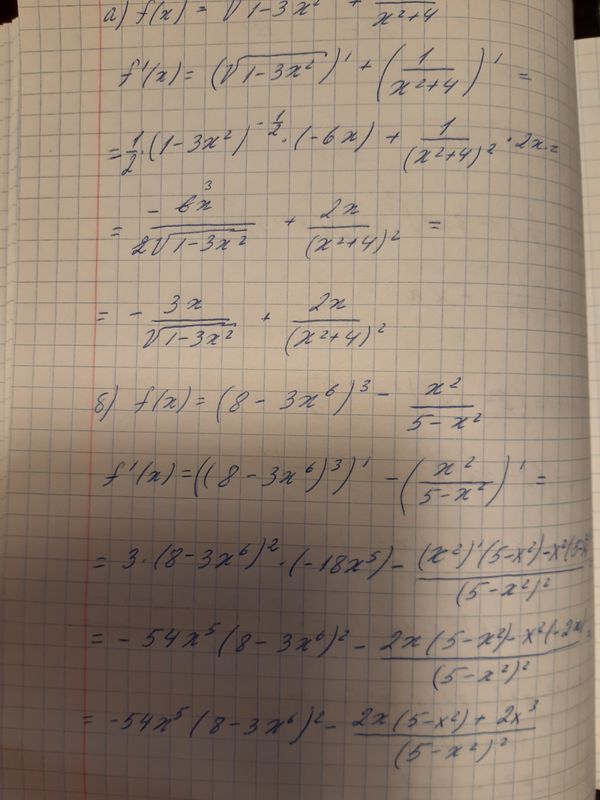 а) f(x) = √(1-3x²) + 1/(x²+4)
f'(x) = (√(1-3x²))' + (1/(x²+4))' =
= 1/2·(1-3x²)^(-1/2)·(-6x) + 1/(x²+4)²·2x=
= -6x/(2√(1-3x²)) 3 + 2x/(x²+4)² =
= - 3x/√(1-3x²) + 2x/(x²+4)²
б) f(x) = (8 - 3x⁶)³ - x²/(5-x²)
f'(x) = ((8 - 3x⁶)³)' - (x²/(5-x²))' =
= 3·(8-3x⁶)²·(-18x⁵) - ((x²)'(5-x²)-x²(5-x²)/(5-x²)²
= - 54x⁵(8-3x⁶)² - (2x(5-x²)-x²(-2x))/(5-x²)² =
= -54x⁵(8-3x⁶)² - (2x(5-x²) + 2x³)/(5-x²)²